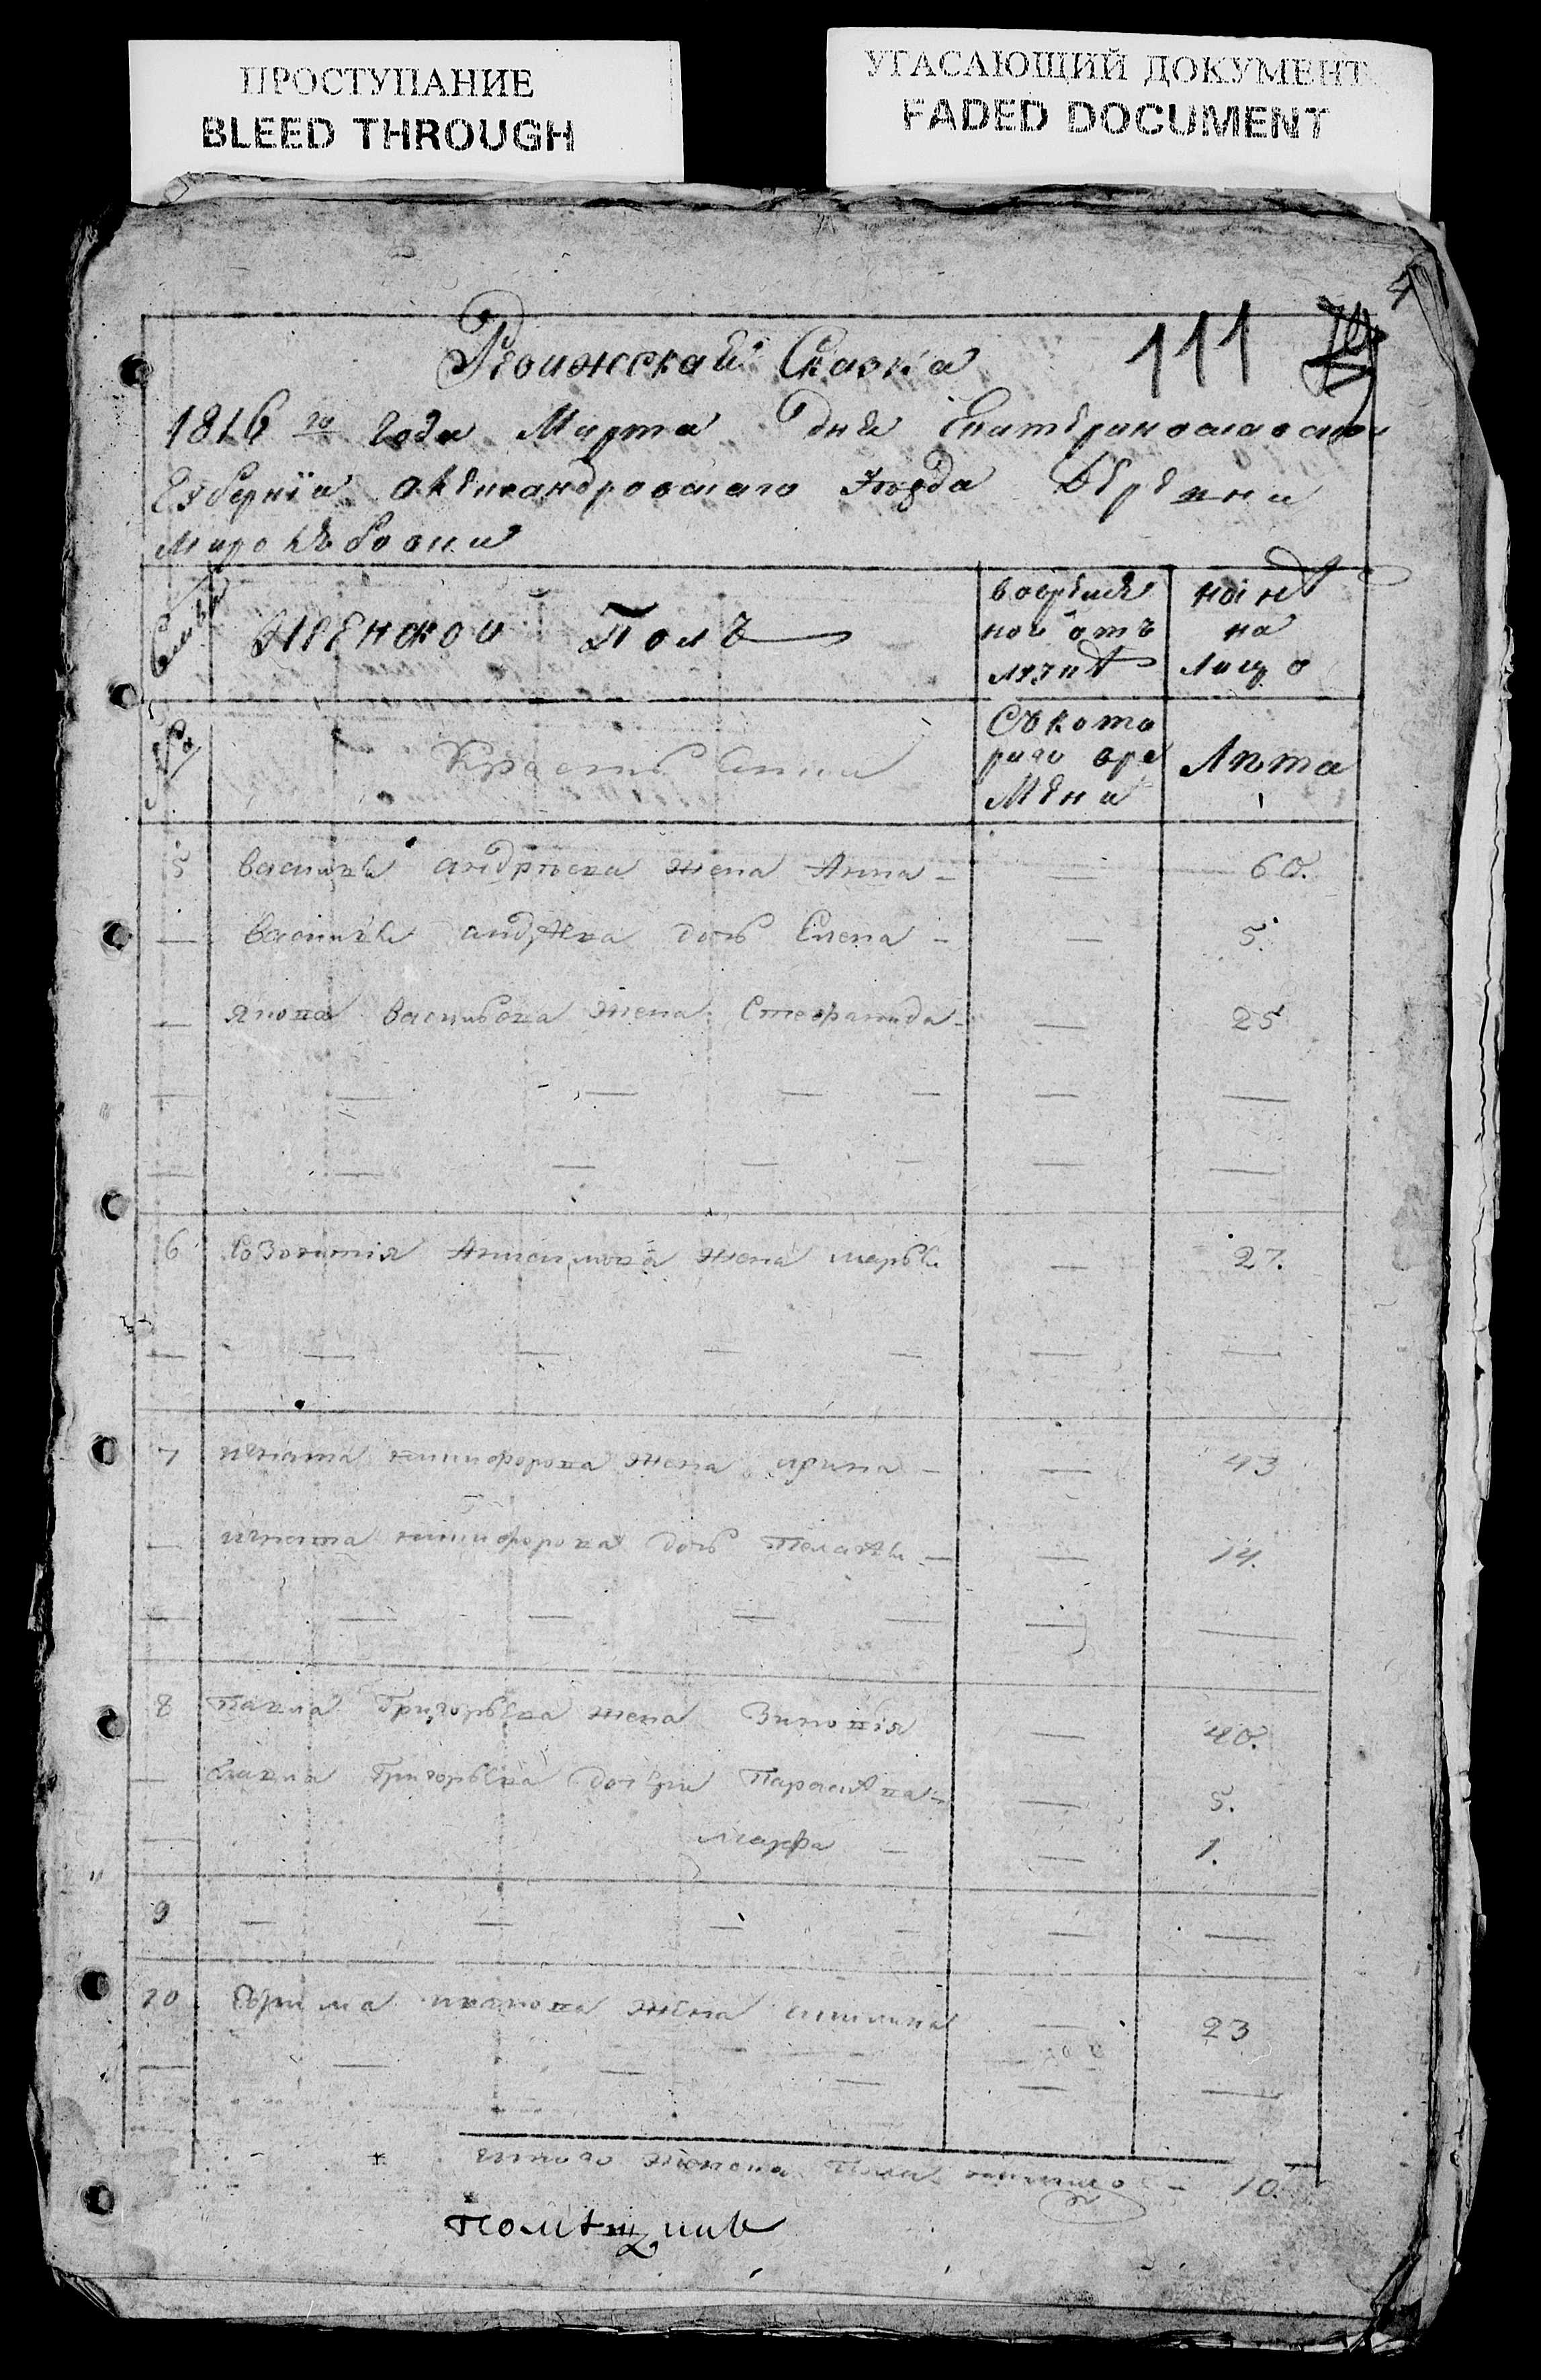 ПРОСТУПАНИЕ
BLEED THROUGH
УГАСАЮЩИЙ ДОКУМЕНТ
FADED DOCUMENT
4
Ревижская Сказка
111
1816 го года Марта дня Екатеринославской
Губерніи Александровскаго Уезда Деревни
Миролюбовки
Семьи
Женской Полъ
вовремян
ной отъ
лучке
ныне
на
лицо
№
Крестьянки
Съкото
раго вре
мени
Лета
5 василья андреева жена Анна – — 60.
— василья андреева дочь Елена – — 5.
— якова васильева жена Стефанида – — 25
6 Анисимова жена марья — 27.
7 игната никифорова жена ирина – — 43
— игната никифорова дочь Пелагея — — 14.
8 Павла Григорьева жена Зиновія — 40.
— Павла Григорьева дочери Параскева – — 5.
— марфа – — 1.
9 — — — — — —
10 Ефима иванова жена — 23
итого женска пола налицо – 10.
помещик